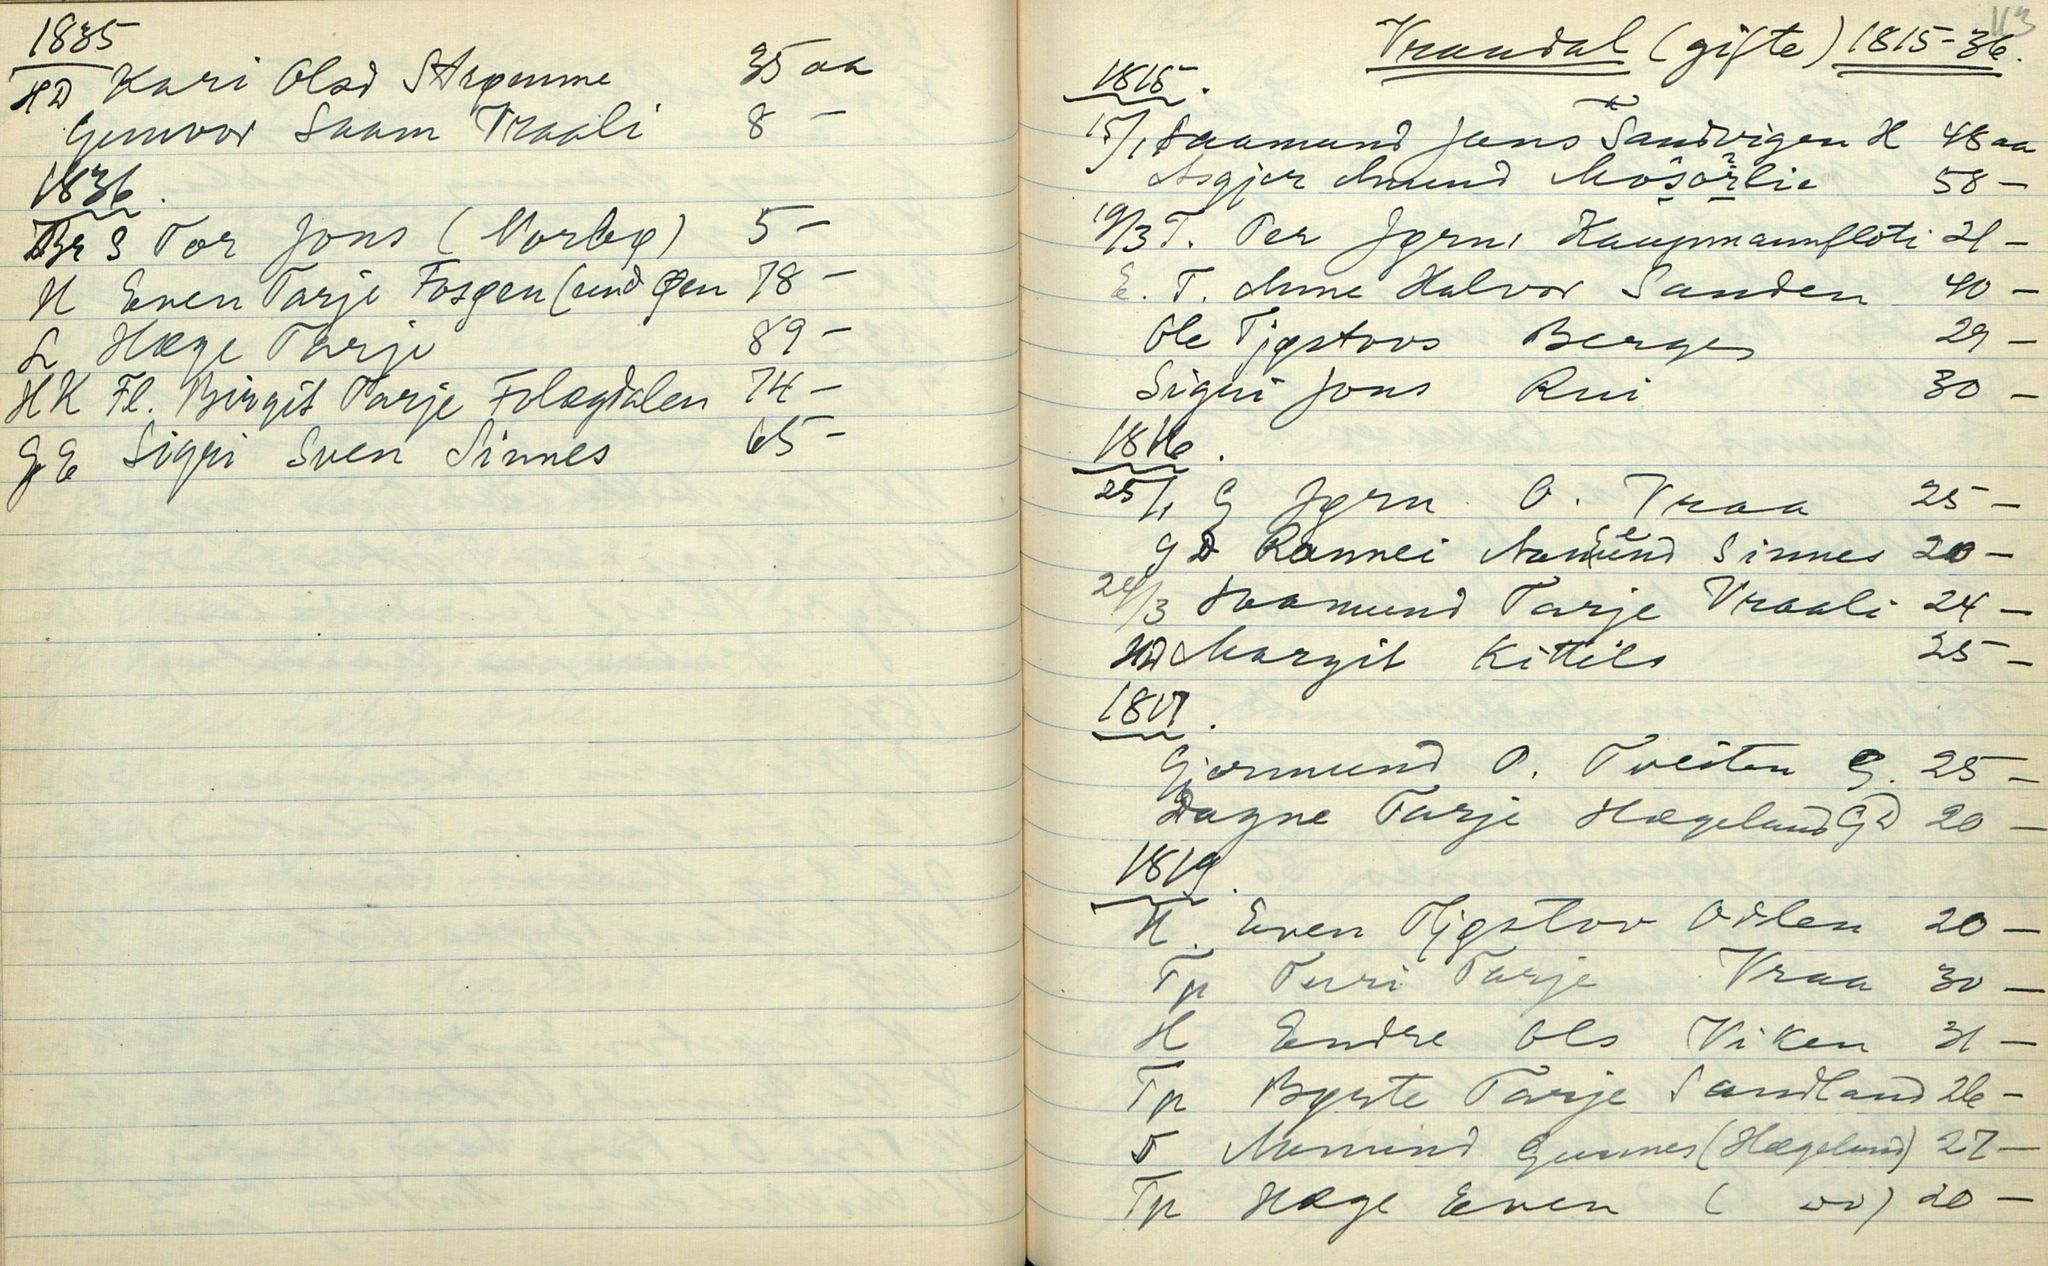 1835
HD Kari Olsd Strømme 35 aa
Gunvor Saam Vraali 8 -
1836.
Br S Tor Jons (Norbø) 5 -
H Even Tarje Fosgen (und Øen 78 -
L Hæge Tarje 89 -
HK Fl. Birgit Tarje Flægdalen 74 -
GE Sigri Sven Sinnes 65 -
113
Vraadal (gifte) 1815-36.
1815.
15/1 Saamund Jons Sandvigen H 48 aa
Asgjer Amund Mosørlie 58 -
19/3 T. Per Jørns Kaupmannfloti 21 -
E. T. Anne Halvor Sanden 40 -
Ole Tjøstovs Berges 29 -
Sigri Jons Rui 30 -
1816.
25/1 G Jørn O. Vraa 25 -
GD Rannei Aamund Sinnes 20 -
/3 Aamund Tarje Vraali 24 -
HD Margit Kittils 25 -
1817.
Gjermund O. Tveiten G. 25 -
Dagne Tarje Hægeland GD 20 -
1819.
H. Even Tjøstov Odlen 20 -
Tp Turi Tarje Vraa 30 -
H Endre Ols Viken 31 -
Tp Byrte Tarje Sandland 26 -
T Aamund Gunnes (Hægeland) 27 -
Tp Hæge Even ( ) 20 -